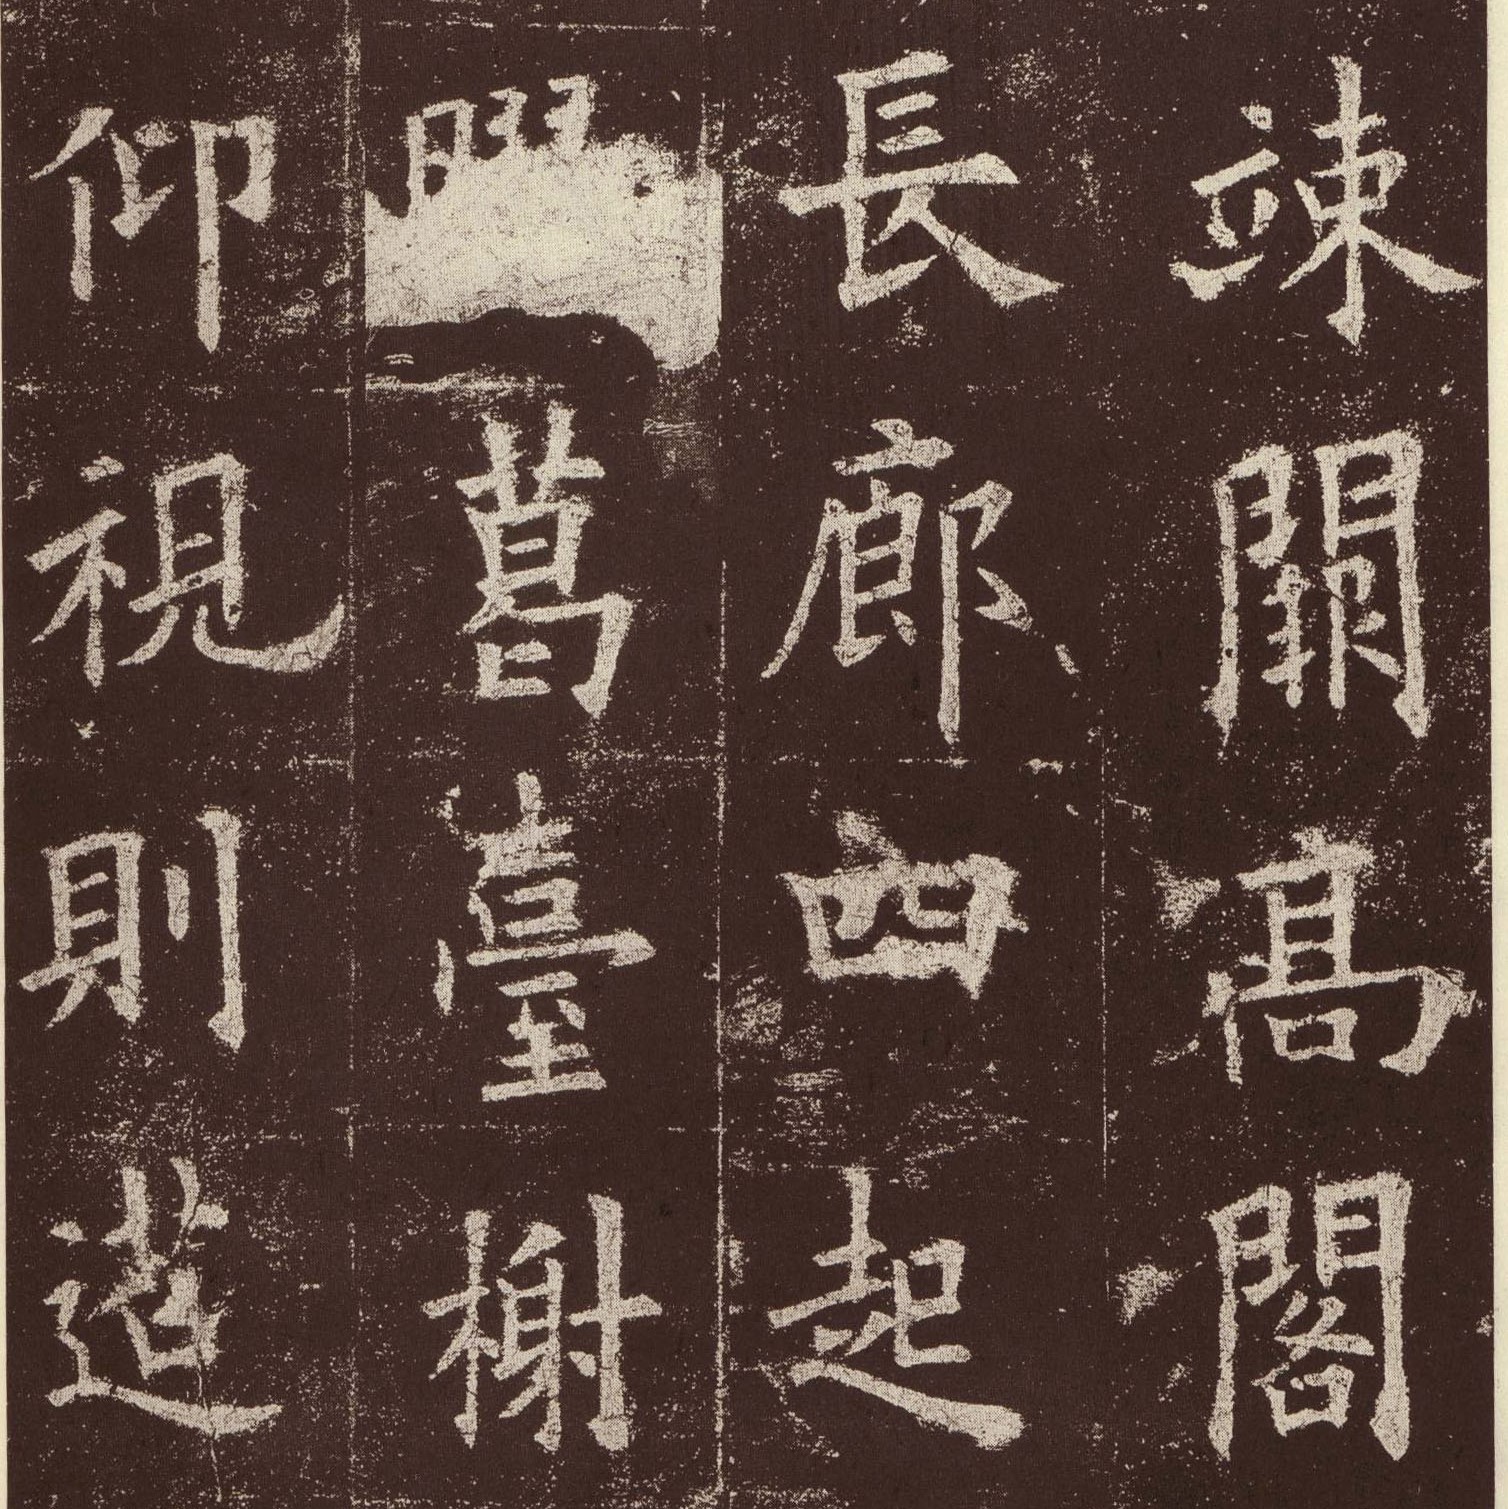 竦闕高閣
長廊四起
葛臺榭
仰視則迢